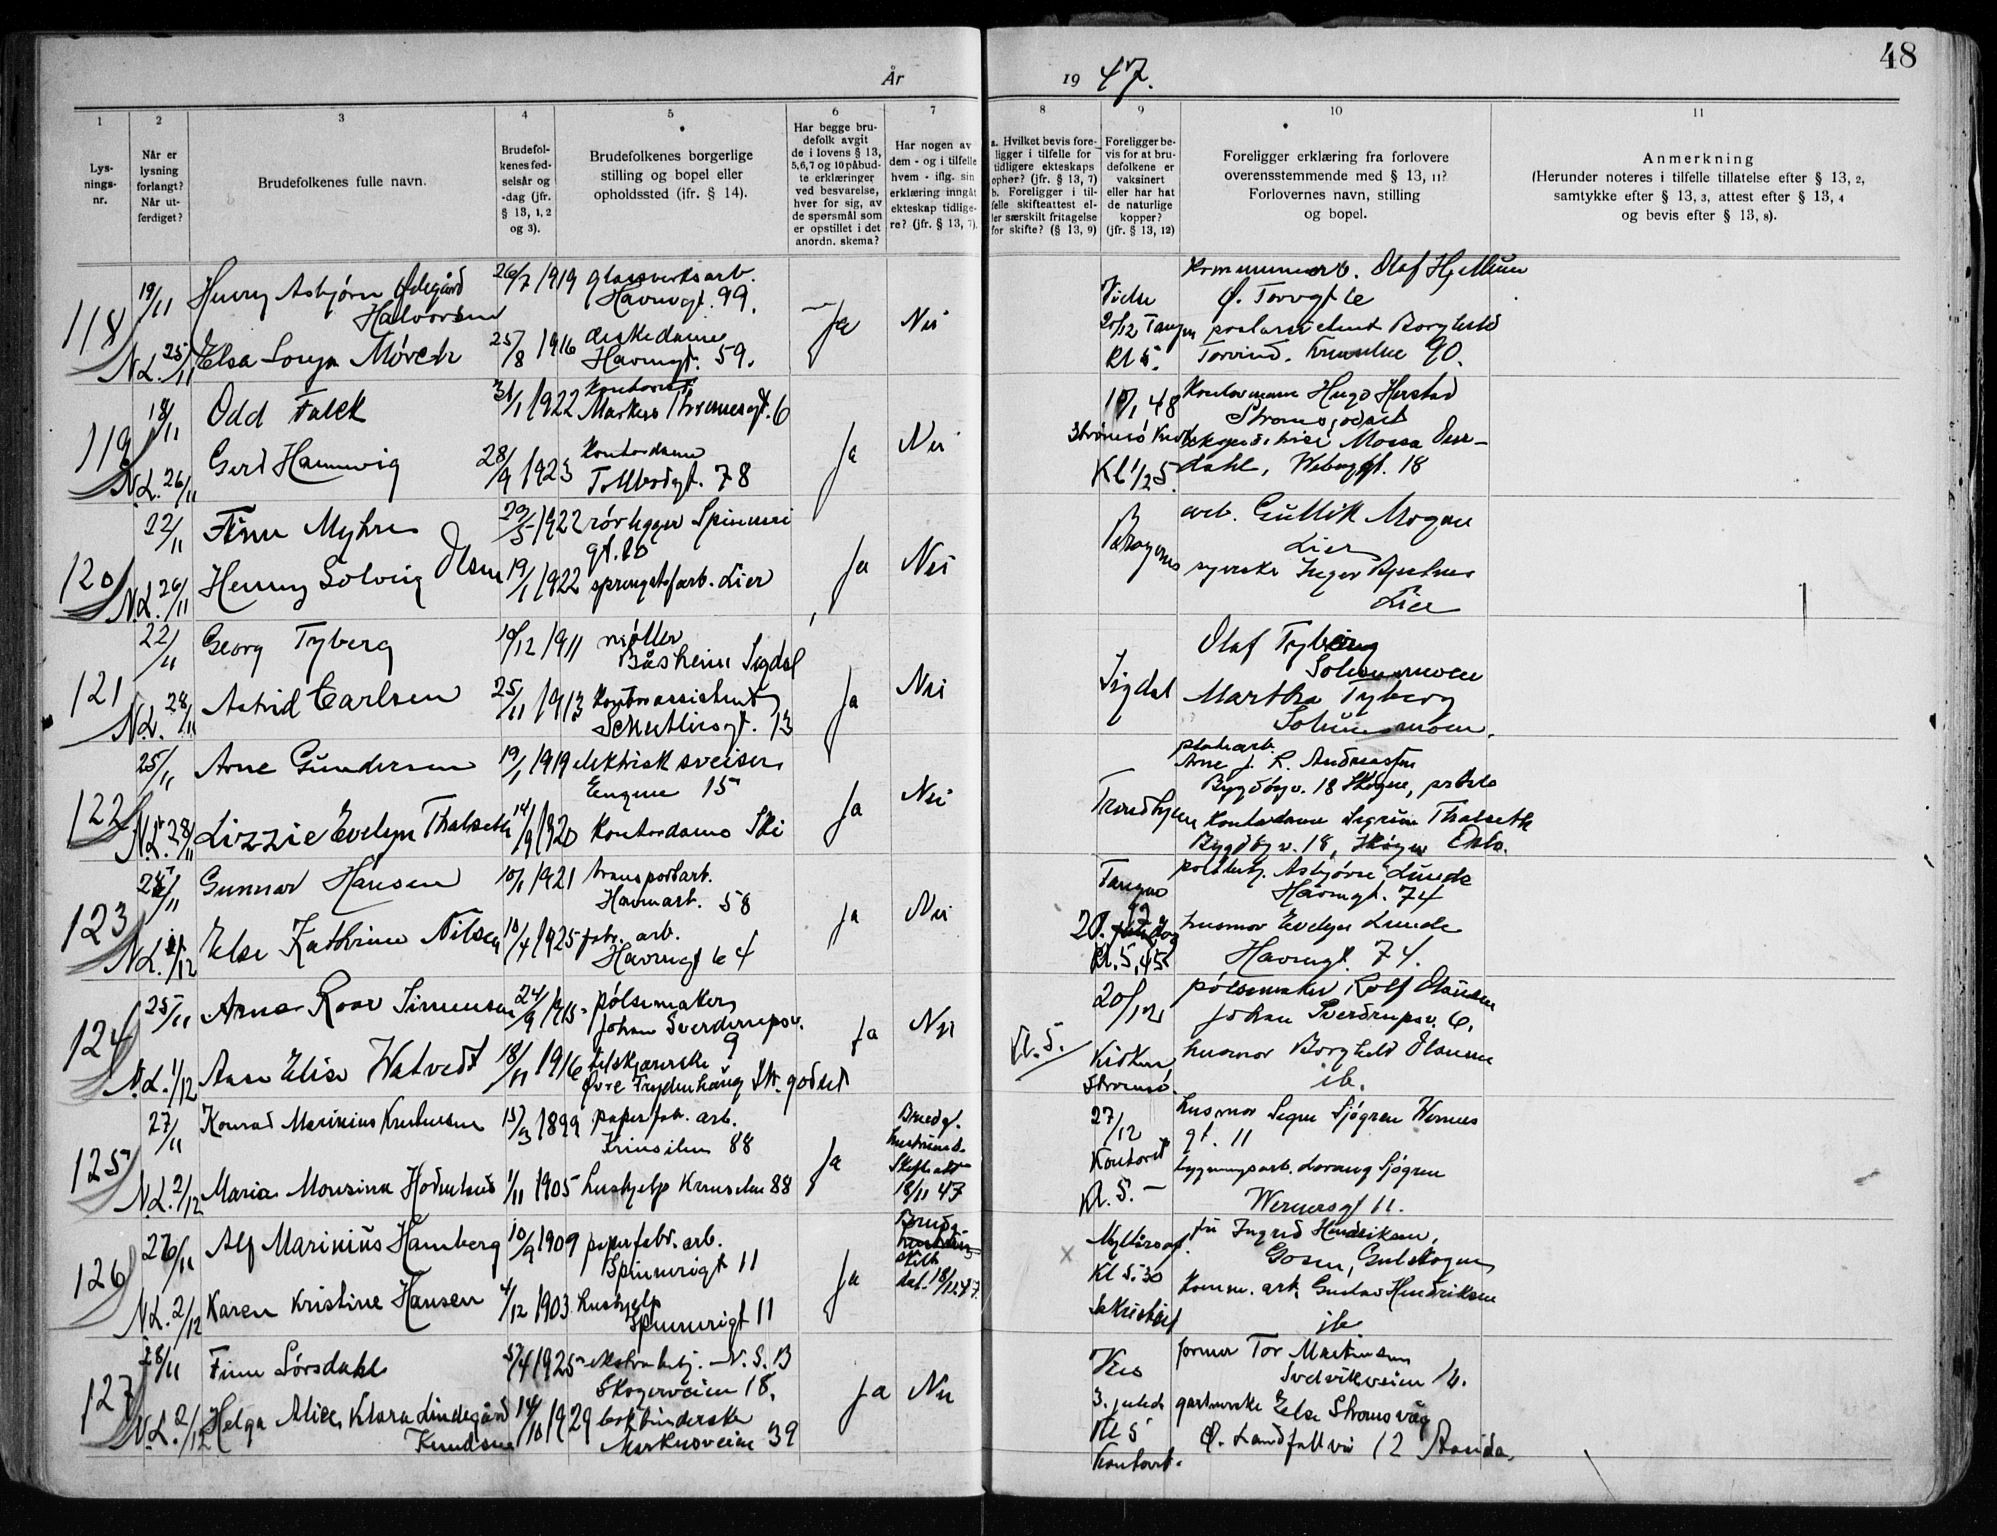 48
År 1947.
1 2 3 4 5 6 7 8 9 10 11
Lys-
nings-
nr.
Når er
lysning
forlangt?
Når ut-
ferdiget?
Brudefolkenes fulle navn.
Brudefol-
kenes fød-
selsår og
-dag (jfr.
§ 13, 1, 2
og 3).
Brudefolkenes borgerlige
stilling og bopel eller
opholdssted (ifr. § 14).
Har begge bru-
defolk avgit
de i lovens § 13,
5,6,7 og 10 påbud-
te erklæringer
ved besvarelse,
hver for sig, av
de spørsmål som
er opstillet i det
anordn. skema?
Har nogen av
dem - og i tilfelle
hvem - iflg. sin
erklæring inngåt
ekteskap tidlige-
re? (jfr. § 13, 7).
a. Hvilket bevis fore-
ligger i tilfelle for
tidligere ekteskaps
ophør? (jfr. § 13, 7)
b. Foreligger i til-
felle skifteattest el-
ler særskilt fritagelse
for skifte? (§ 13, 9)
Foreligger be-
vis for at bru-
defolkene er
vaksinert
eller har hat
de naturlige
kopper?
(jfr. § 13, 12)
Foreligger erklæring fra forlovere
overensstemmende med § 13, 11?
Forlovernes navn, stilling
og bopel.
Anmerkning
(Herunder noteres i tilfelle tillatelse efter § 13, 2,
samtykke efter § 13, 3, attest efter § 13, 4
og bevis efter § 13, 8).
118
19/11 Henry Asbjørn Ødegård 26/7 1919 glassverksarb.
Halvorsen Havnegt. 99.
N.L. 25/11 Elsa Sonja Mørch 25/8 1916 diskedame
Havnegt. 59.
Ja Nei
20/12 Tangen
Kl 5.
kommunearb. Olaf Hjellum
Ø. Torvgt 6
119
18/11 Odd Falck 31/1 1922 kontorist
Markus Thranesgt. 6
N.L. 26/11 Gerd Hamnvig 28/9 1923 Kontordame
Tollbodgt. 78
Ja Nei
10/1 48
Strømsø
Kl 1/2 5.
Kontormann Hugo Herstad
Strømsgodset
dahl, Webergt. 18
120
22/11 Finn Myhre 29/5 1922 rørlegger Spinneri
gt.
N.L. 26/11 Henny Solveig Olsen 19/1 1922 sprengstofarb. Lier
Ja Nei
Bragernes
arb. Gullik Mogen
Lier
syerske Inger
Lier
121
22/11 Georg Tyberg 10/12 1911 møller
Båsheim Sigdal
N.L. 28/11 Astrid Carlsen 25/11 1913 kontorassistent
Schultzsgt. 13
Ja Nei
Sigdal
Olaf Tyberg
Solumsmoen
Martha Tyberg
Solumsmoen.
122
25/11 Arne Gundersen 19/1 1919 elektrisk sveiser
Engene 15
N.L. 28/11 Lizzie Evelyn Thalseth 14/9 1920 kontordame Ski
Ja Nei
Trondhjem
platearb.
Arne J. R. Andreassen
Bygdøyv. 18 Skøyen, pr Oslo
Kontordame Sigrun Thalseth
Bygdøy v. 18, Skøyen Oslo.
123
25/11 Gunnar Hansen 10/1 1921 transportarb.
Havnegt. 58
N.L. 1/12 Else Kathrine Nilsen 10/4 1925 fabr. arb.
Havnegt 64
Ja Nei
Tangen
Kl. 5,45
politibetj. Asbjørn Lunde
Havnegt. 74
husmor Evelyn Lunde
Havnegt. 74.
124
25/11 Arne Roar Simensen 24/9 1915 pølsemaker
Johan Sverdrupsv.
9
N.L. 1/12 Aase Elise Hatvedt 18/11 1916
Øvre Frydenhaug Str. godset
Ja Nei
Kl. 5.
20/12
Kirken
Strømsø.
pølsemaker Rolf Clausen
Johan Sverdrupsv. 6.
husmor Borghild Clausen
ib.
125
27/11 Konrad Marinius Knudsen 15/3 1899 papirfab. arb.
88
N.L. 2/12 Maria Monsina 1/11 1905 hushjelp 88
Ja
Brudg.
Skifteatt
18/11 47
27/12
Kontoret
Kl. 5. —
husmor Signe Sjøgren Werners
gt. 11
bygningsarb. Sjøgren
Wernersgt 11.
126
26/11 Alf Marinius Hamberg 10/9 1909 papirfabr. arb.
Spinnerigt 11
N.L. 2/12 Karen Kristine Hansen 4/12 1903 hushjelp
Spinnerigt 11
Ja
Brudg.
skilt
x
Kl 5.30
Sakristiet
fru Ingrid Hendriksen,
Gosen, Gulskogen
Komm. arb. Gustav Hendriksen
ib
127
28/11 Finn Sørsdahl 5/4 1925 ekstrabetj. N.S.B
Skogerveien 18.
N.L. 2/12 Helga Alice Klara Lindegård 14/10 1929 bokbinderske
Knudsen Markusveien 39
Ja Nei
3. juledag
Kl 5
Kontoret.
former Tor Martinsen
Sudvikveien 16.
Else Strømsvåg
Ø. Landfallvei 12 Åssida.